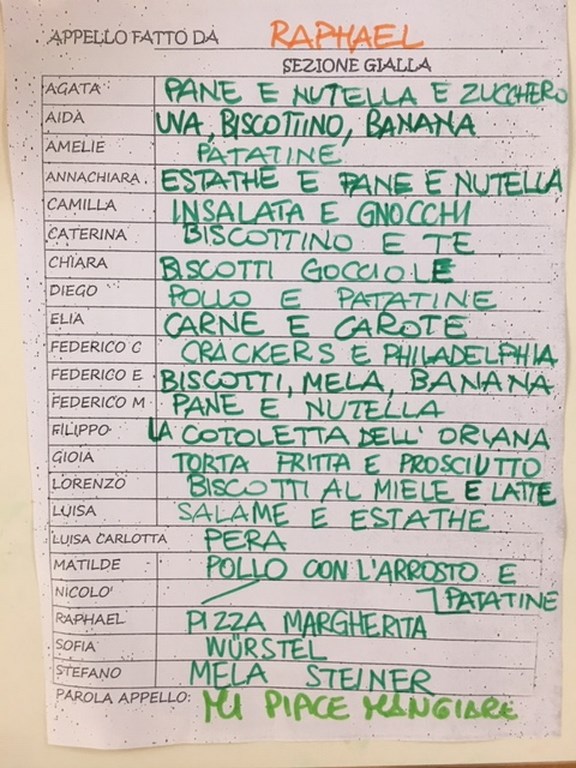 APPELLO FATTO DA RAPHAEL
SEZIONE GIALLA
AGATA PANE E NUTELLA E ZUCCHERO
AIDA UVA, BISCOTTINO, BANANA
AMELIE PATATINE
ANNACHIARA ESTATHE E PANE E NUTELLA
CAMILLA INSALATA E GNOCCHI
CATERINA BISCOTTINO E TE
CHIARA BISCOTTI GOCCIOLE
DIEGO POLLO E PATATINE
ELIA CARNE E CAROTE
FEDERICO C CRACKERS E PHILADELPHIA
FEDERICO E BISCOTTI, MELA, BANANA
FEDERICO M PANE E NUTELLA
FILIPPO LA COTOLETTA DELL' ORIANA
GIOIA TORTA FRITTA E PROSCIUTTO
LORENZO BISCOTTI AL MIELE E LATTE
LUISA SALAME E ESTATHE
LUISA CARLOTTA PERA
MATILDE POLLO CON L'ARROSTO E
NICOLO' PATATINE
RAPHAEL PIZZA MARGHERITA
SOFIA WÜRSTEL
STEFANO MELA STEINER
PAROLA APPELLO: MI PIACE MANGIARE